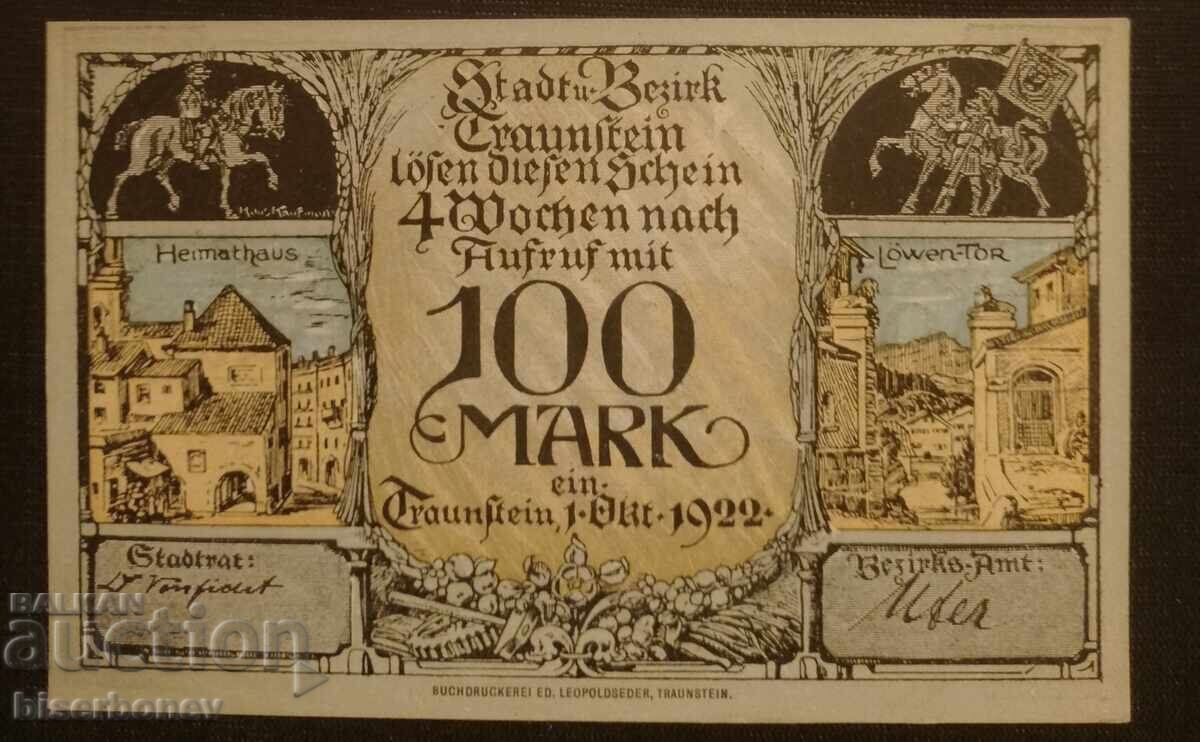 Stadt u. Bezirk
Traunstein
lösen diesen Schein
4 Wochen nach
Aufruf mit
100
MARK
ein.
Traunstein, 1. Okt. 1922.
Heimathaus
Löwen-Tor
Stadtrat:
Bezirks-Amt:
BUCHDRUCKEREI ED. LEOPOLDSEDER, TRAUNSTEIN.
BALKAN
auction
biserbonev